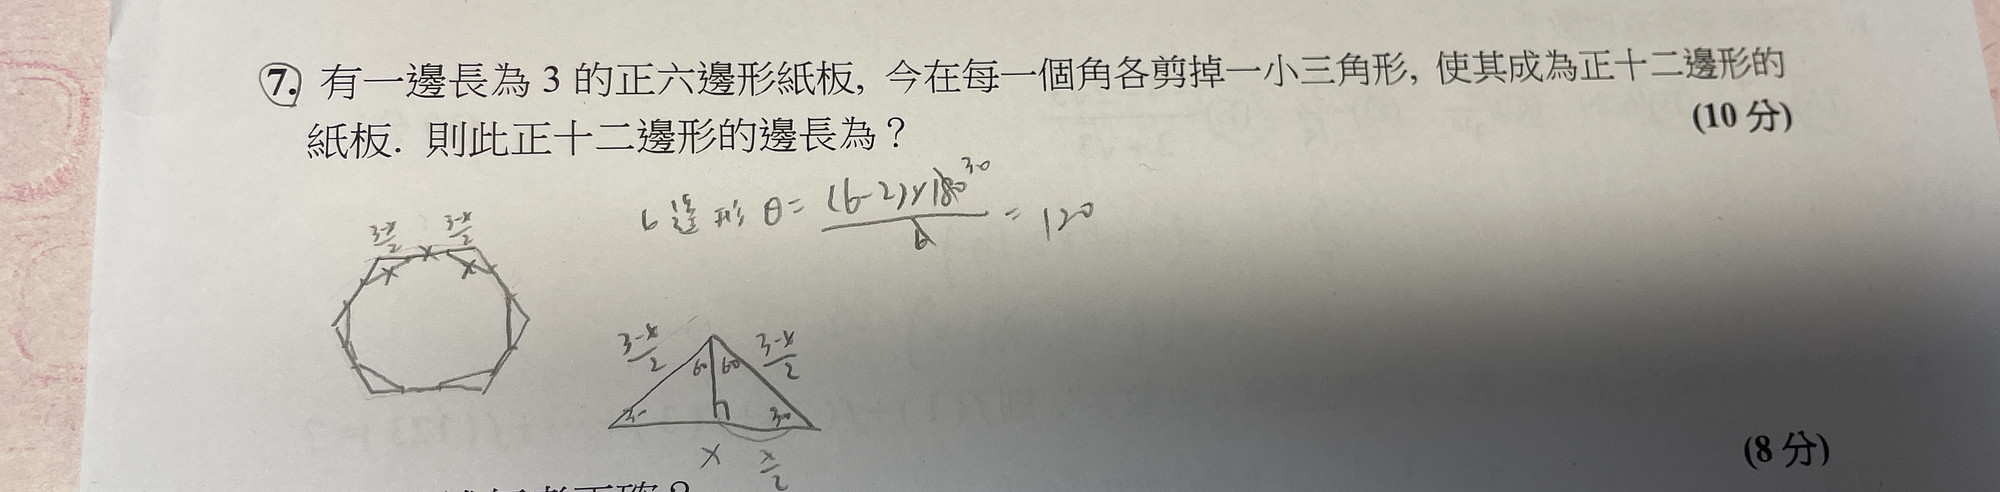 7. 有一邊長為 3 的正六邊形紙板, 今在每一個角各剪掉一小三角形, 使其成為正十二邊形的
紙板. 則此正十二邊形的邊長為? (10 分)
6 邊形 θ = (6-2)×180 30 / 6 = 120
3-x/2 3-x/2
x
x x
3-x/2 3-x/2
60 60
30 30
x x/2
(8 分)